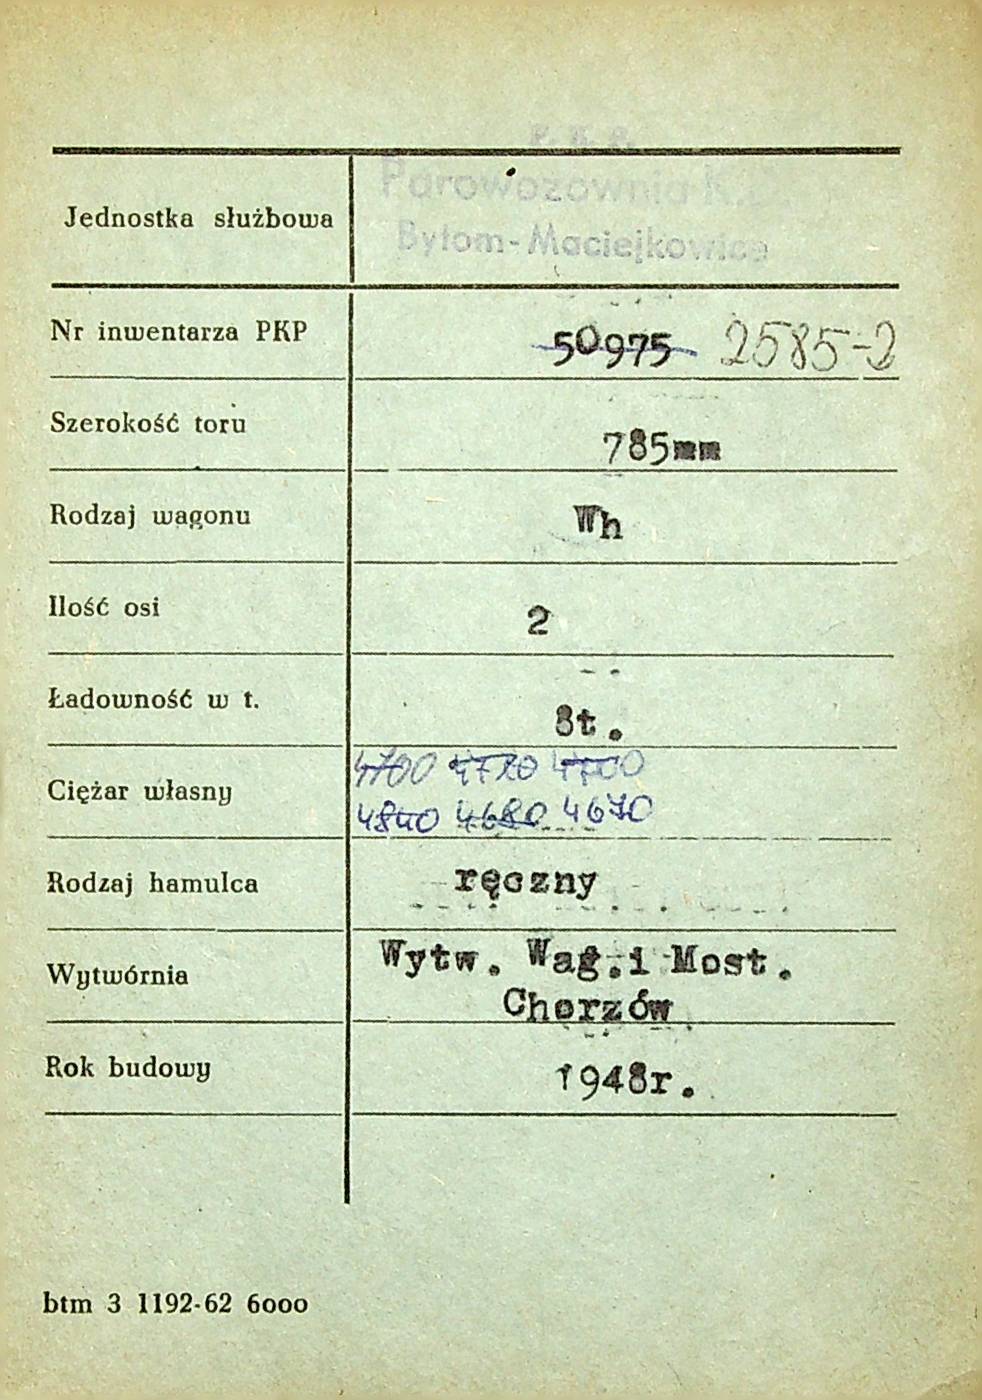 P. K. P.
Parowozownia K.D.
Jednostka służbowa
Bytom-Maciejkowice
Nr inwentarza PKP 50975 2585-2
Szerokość toru 785mm
Rodzaj wagonu Wh
Ilość osi 2
Ładowność w t. 8t.
4700 4720 4700
Ciężar własny
4840 4680 4670
Rodzaj hamulca ręczny
Wytwórnia Wytw. Wag.i Most.
Chorzów
Rok budowy 1948r.
btm 3 1192-62 6000